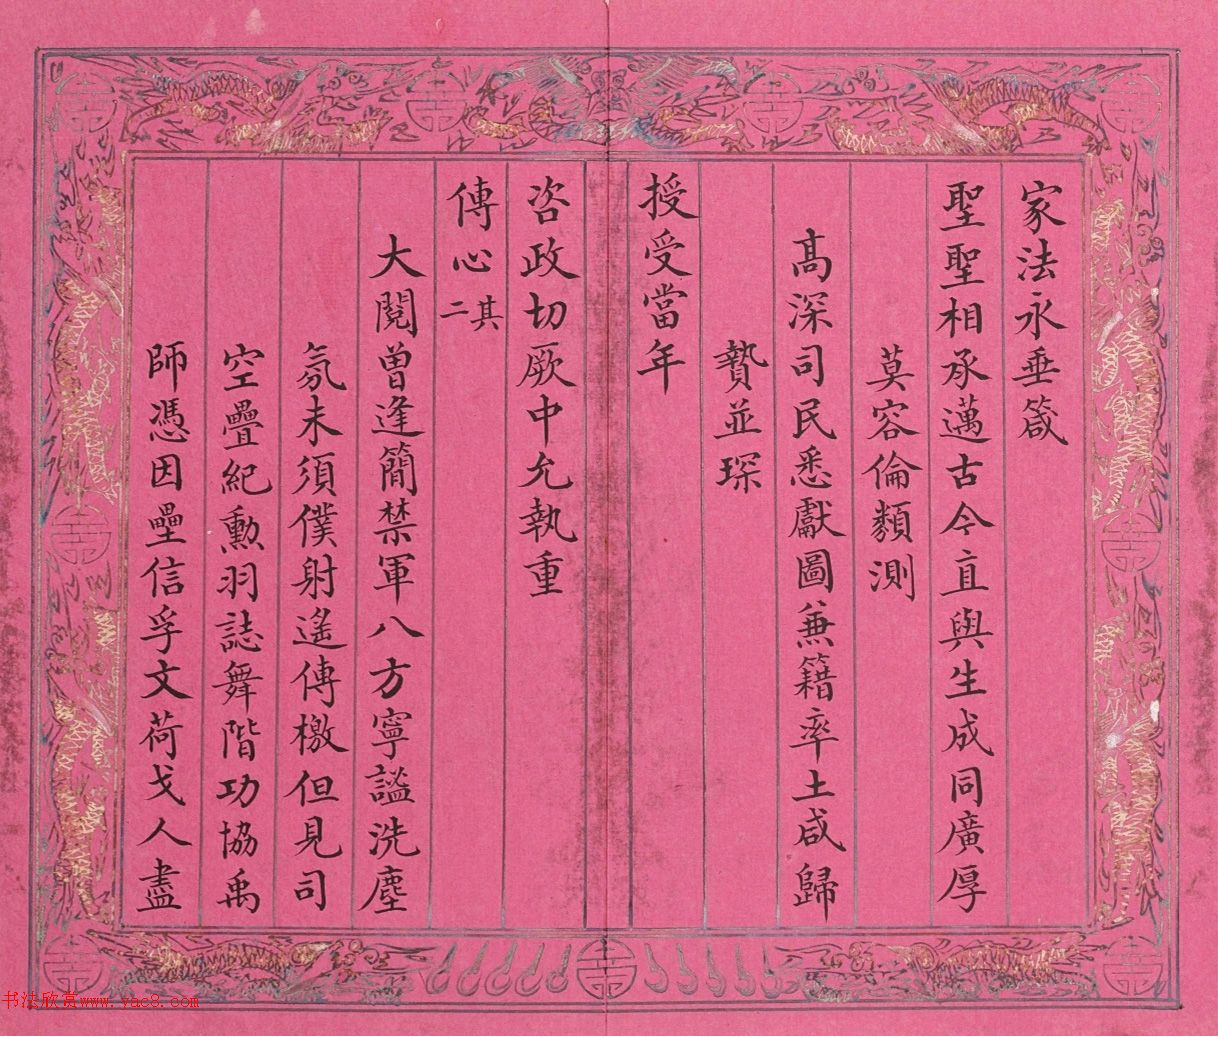 家法永垂箴
聖聖相承邁古今直與生成同廣厚
莫容倫類測
高深司民悉獻圖兼籍率土咸歸
贄並琛
授受當年
咨政切厥中允執重
傳心其二
大閱曾逢簡禁軍八方寧謐洗塵
氛未須僕射遙傳檄但見司
空疊紀勳羽誌舞階功協禹
師憑因壘信孚文荷戈人盡
书法欣赏www.yac8.com